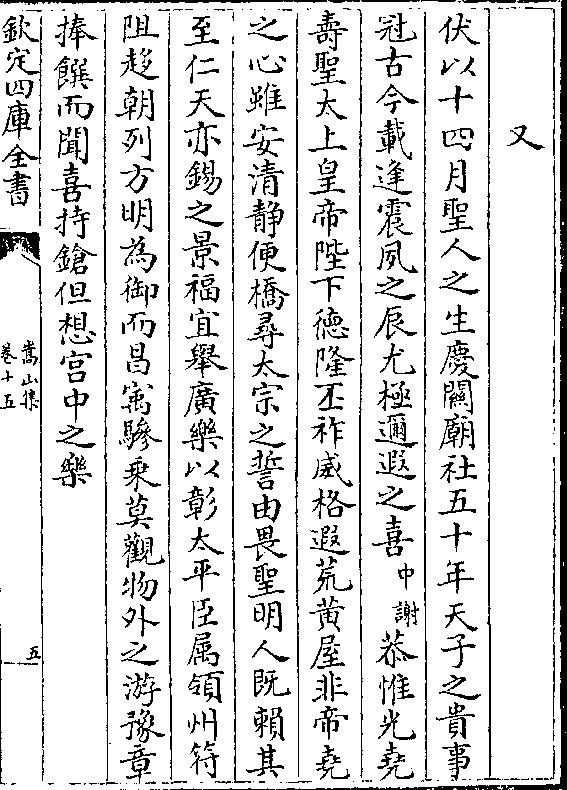 又
伏以十四月聖人之生慶關廟社五十年天子之貴事
冠古今載逢震夙之辰尤極邇遐之喜中謝恭惟光堯
壽聖太上皇帝陛下德隆丕祚威格遐荒黄屋非帝堯
之心雖安清静便橋尋太宗之誓由畏聖明人既賴其
至仁天亦錫之景福宜舉廣樂以彰太平臣属領州符
阻趍朝列方明為御而昌㝢驂乗莫觀物外之游豫章
捧饌而聞喜持鎗但想宫中之樂
欽定四庫全書
嵩山集
卷十五
五